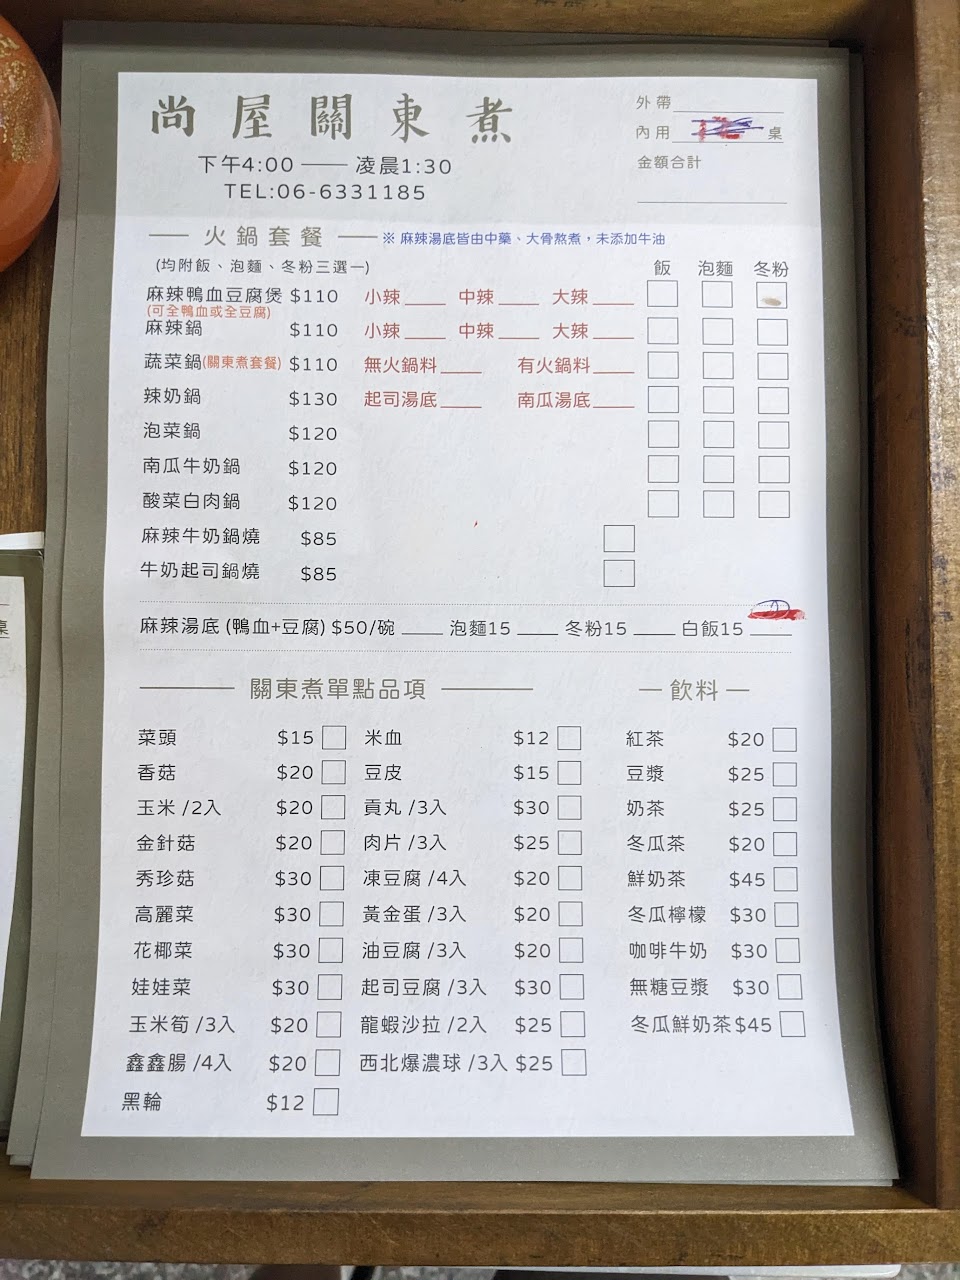 尚屋關東煮
下午4:00 —— 凌晨1:30
TEL:06-6331185
外帶
內用 桌
金額合計
火鍋套餐 ※ 麻辣湯底皆由中藥、大骨熬煮,未添加牛油
(均附飯、泡麵、冬粉三選一) 飯 泡麵 冬粉
麻辣鴨血豆腐煲 $110 小辣 中辣 大辣
(可全鴨血或全豆腐)
麻辣鍋 $110 小辣 中辣 大辣
蔬菜鍋(關東煮套餐) $110 無火鍋料 有火鍋料
辣奶鍋 $130 起司湯底 南瓜湯底
泡菜鍋 $120
南瓜牛奶鍋 $120
酸菜白肉鍋 $120
麻辣牛奶鍋燒 $85
牛奶起司鍋燒 $85
麻辣湯底 (鴨血+豆腐) $50/碗 泡麵15 冬粉15 白飯15
關東煮單點品項 飲料
菜頭 $15 米血 $12 紅茶 $20
香菇 $20 豆皮 $15 豆漿 $25
玉米 /2入 $20 貢丸 /3入 $30 奶茶 $25
金針菇 $20 肉片 /3入 $25 冬瓜茶 $20
秀珍菇 $30 凍豆腐 /4入 $20 鮮奶茶 $45
高麗菜 $30 黃金蛋 /3入 $20 冬瓜檸檬 $30
花椰菜 $30 油豆腐 /3入 $20 咖啡牛奶 $30
娃娃菜 $30 起司豆腐 /3入 $30 無糖豆漿 $30
玉米筍 /3入 $20 龍蝦沙拉 /2入 $25 冬瓜鮮奶茶 $45
鑫鑫腸 /4入 $20 西北爆濃球 /3入 $25
黑輪 $12
桌